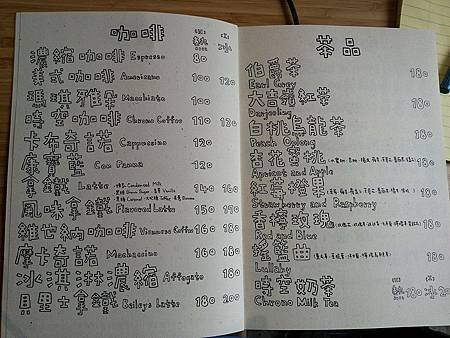 咖啡
濃縮咖啡 Espresso 80
美式咖啡 Americano 100 120
瑪淇雅朵 Macchiato 100
時空咖啡 Chrono Coffee 110 130
卡布奇諾 Cappuccino 120
康寶藍 Con Panna 120
拿鐵 Latte 140 160
風味拿鐵 Flavored Latte 150 170
維也納咖啡 Viennese Coffee 160 180
摩卡奇諾 Mochaccino 160 180
冰淇淋濃縮 Affogato 180
貝里士拿鐵 Baileys Latte 180 200
茶品
伯爵茶 180
Earl Grey
大吉嶺紅茶 180
Darjeeling
白桃烏龍茶 180
Peach Oolong
杏花蜜桃 180
Apricot and Apple
紅莓橙果 180
Strawberry and Raspberry
香檸玫瑰 180
Red and Blue
搖籃曲 180
Lullaby
時空奶茶 熱180 冰200
Chrono Milk Tea